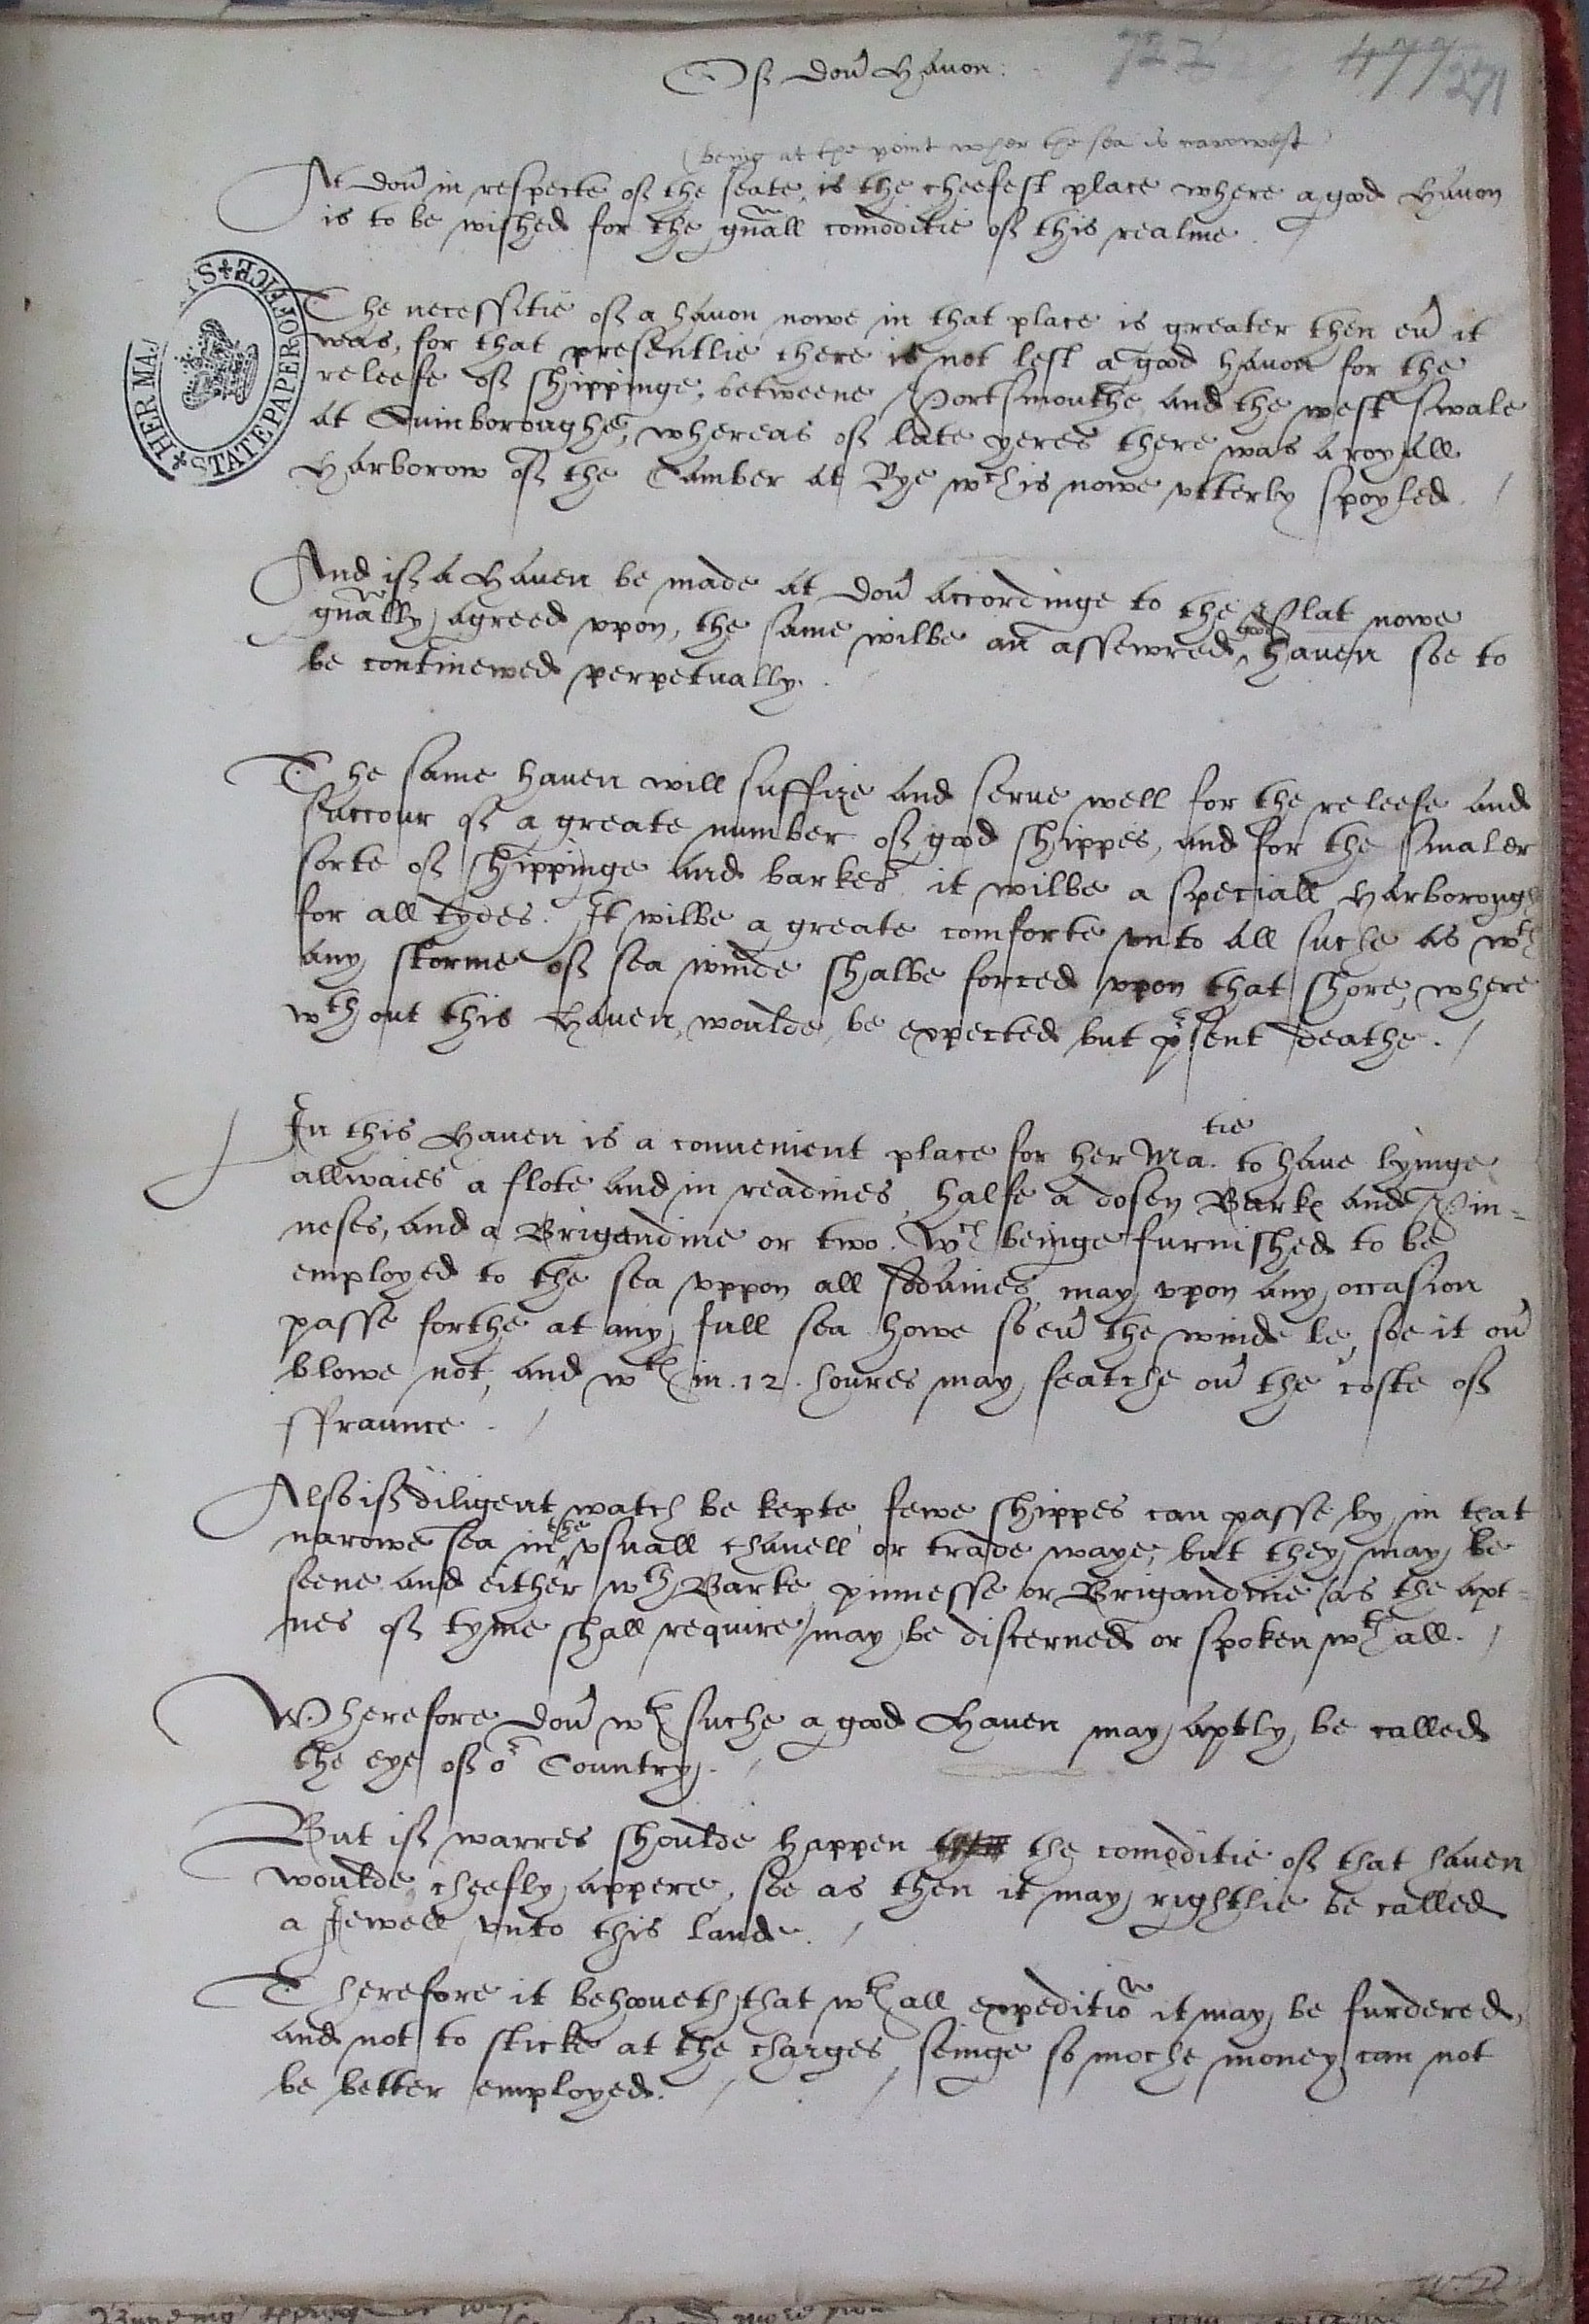 Of Dou' Hauon:
722 477 271
(being at the point wher the sea is narowest)
At Dou' in respecte of the seate, is the cheefest place where a good Hauon
is to be wished for the gn̄all comoditie of this realme.
The necessitie of a hauon nowe in that place is greater then eu' it
was, for that presentlie there is not left a good hauon for the
releefe of shippinge, betweene Portsmouthe and the west swale
at Quinboroughe, whereas of late yeres there was a royall
Harborow of the Camber at Rye wch is nowe vtterly spoyled. /
And if a Hauen be made at Dou' accordinge to the Plat nowe
gn̄ally agreed vpon, the same wilbe an assewred good hauen soe to
be continewed perpetually.
The same hauen will suffize and serue well for the releefe and
succour of a greate number of good shippes, and for the smaler
sorte of shippinge and barkes it wilbe a speciall Harborough
for all tydes. It wilbe a greate comforte vnto all suche as wth
any storme of sea winde shalbe forced vpon that shore, where
wth out this Hauen, woulde be expected but p'sent deathe. /
In this Hauen is a conuenient place for her Ma.tie to haue lyinge
allwaies a flote and in readines, halfe a dosen Barkes and Pin=
neses, and a Brigandine or two. Wch beinge furnished to be
employed to the sea vppon all sodaines, may vpon any occasion
passe forthe at any full sea howe so eu' the winde be, soe it ou'
blowe not, and wth in .12. houres may featche ou' the coste of
ffraunce. /
Also if diligent watch be kepte, fewe shippes can passe by in that
narowe sea in the vsuall chanell or trade waye, but they may be
seene and either wth Barke, pinnesse or Brigandine (as the apt=
nes of tyme shall require) may be discerned or spoken wth all. /
Wherefore Dou' wth suche a good Hauen may aptly be called
the eye of or Country. /
But if warres shoulde happen the comoditie of that hauen
woulde cheefly appere, soe as then it may rightlie be called
a Jewell vnto this lande. /
Therefore it behoueth that wth all expeditiō it may be furdered,
and not to sticke at the charges, seinge so moche money can not
be better employed. /
HER MA. STATE PAPER OFFICE